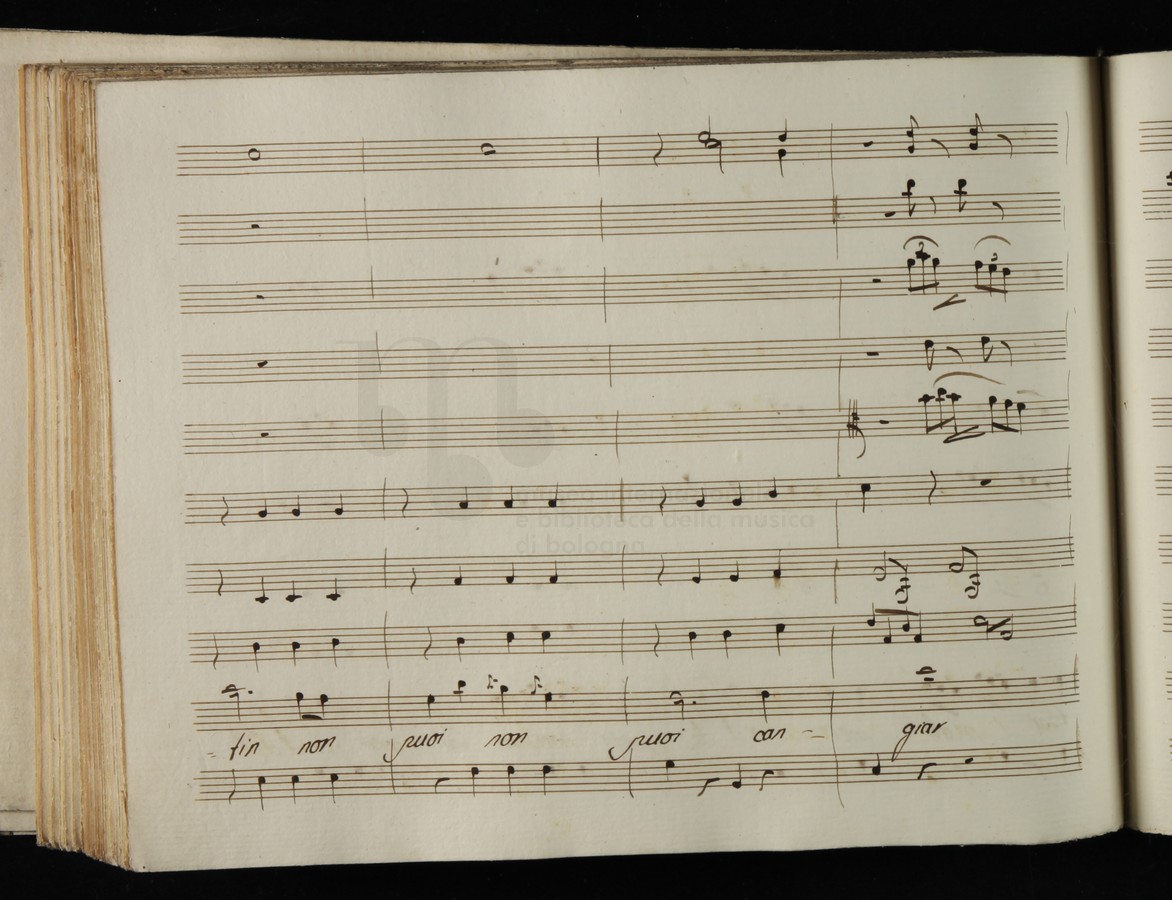 3
3
museo internazionale
e biblioteca della musica
di bologna
- tin non puoi non puoi can - giar